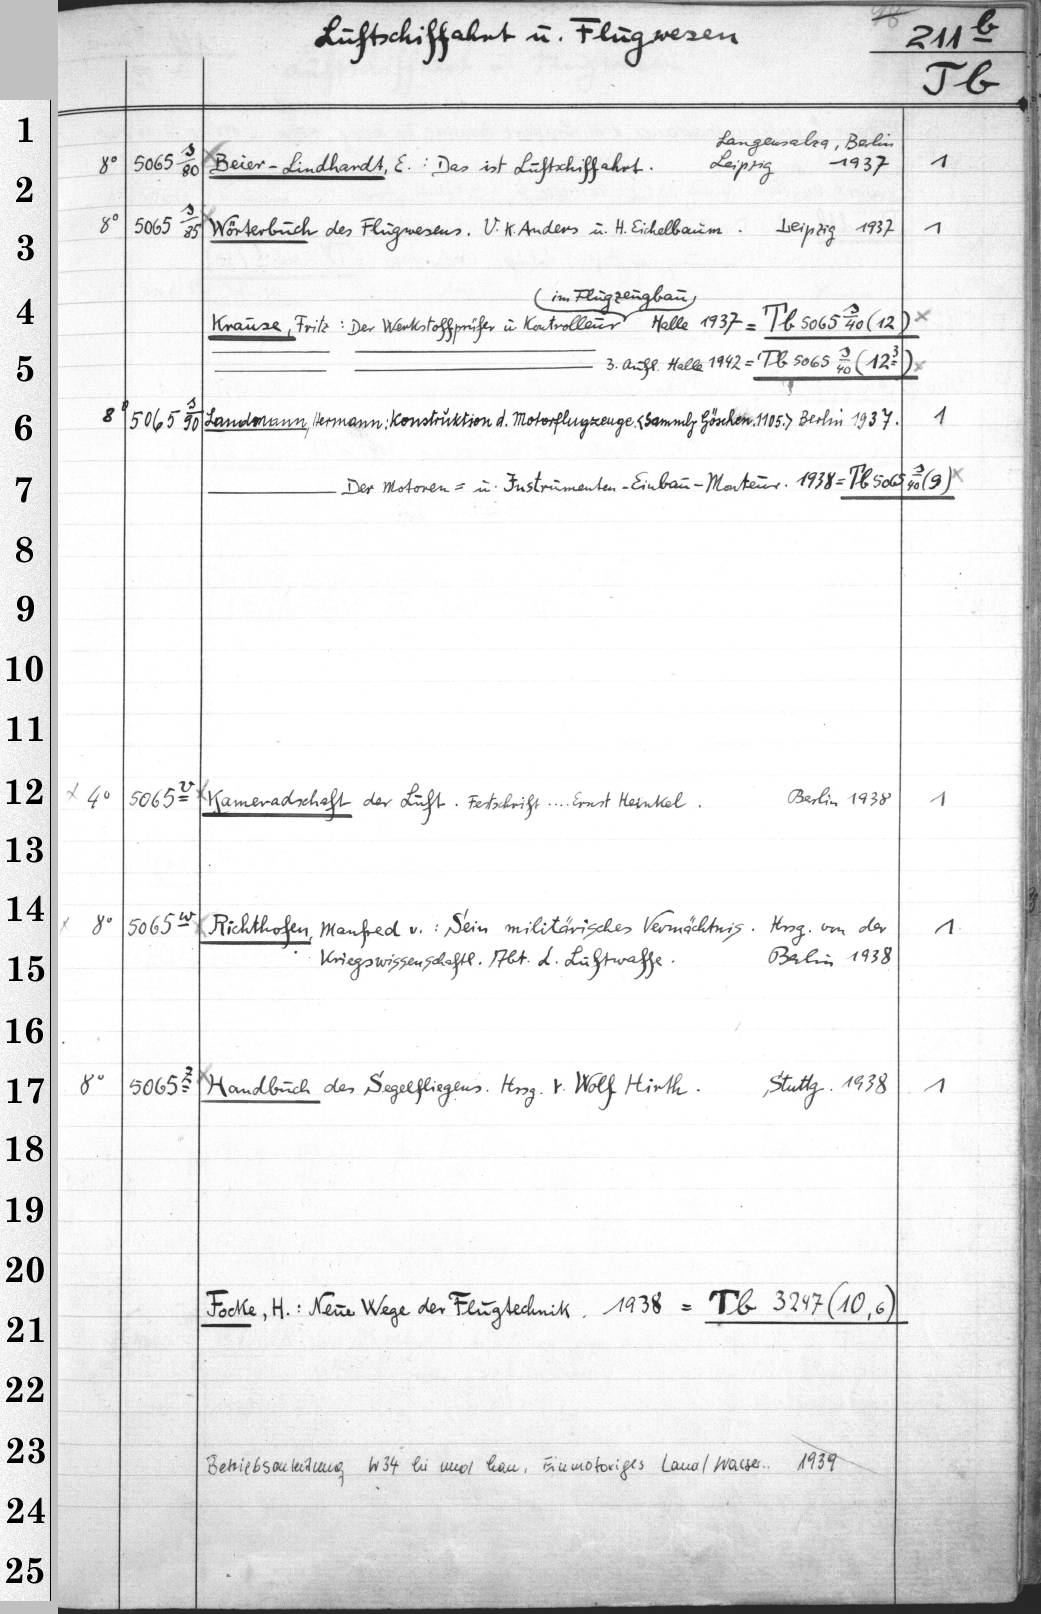 Luftschiffahrt u. Flugwesen
98
211 b
Tb
1
Langensalza, Berlin
8° 5065 s/80 Beier-Lindhardt, E. : Das ist Luftschiffahrt. Leipzig 1937 1
2
8° 5065 s/85 Wörterbuch des Flugwesens. V. K. Anders u. H. Eichelbaum. Leipzig 1937 1
3
(im Flugzeugbau)
4
Krause, Fritz : Der Werkstoffprüfer u Kontrolleur Halle 1937 = Tb 5065 s/40 (12)
5
3. Aufl. Halle 1942 = Tb 5065 s/40 (12³)
6
8° 5065 s/90 Landmann, Hermann: Konstruktion d. Motorflugzeuge. <Samml. Göschen. 1105.> Berlin 1937. 1
7
Der Motoren= u. Instrumenten-Einbau-Monteur. 1938 = Tb 5065 s/40 (9)
8
9
10
11
12
4° 5065 v Kameradschaft der Luft. Festschrift .... Ernst Heinkel. Berlin 1938 1
13
14
8° 5065 w Richthofen, Manfred v. : Sein militärisches Vermächtnis. Hrsg. von der 1
Kriegswissenschaftl. Abt. d. Luftwaffe. Berlin 1938
15
16
17
8° 5065 z Handbuch des Segelfliegens. Hrsg. v. Wolf Hirth. Stuttg. 1938 1
18
19
20
Focke, H. : Neue Wege der Flugtechnik. 1938 = Tb 3247 (10,6)
21
22
23
Betriebsanleitung W34 hi und hau. Einmotoriges Land/Wasser.. 1939
24
25